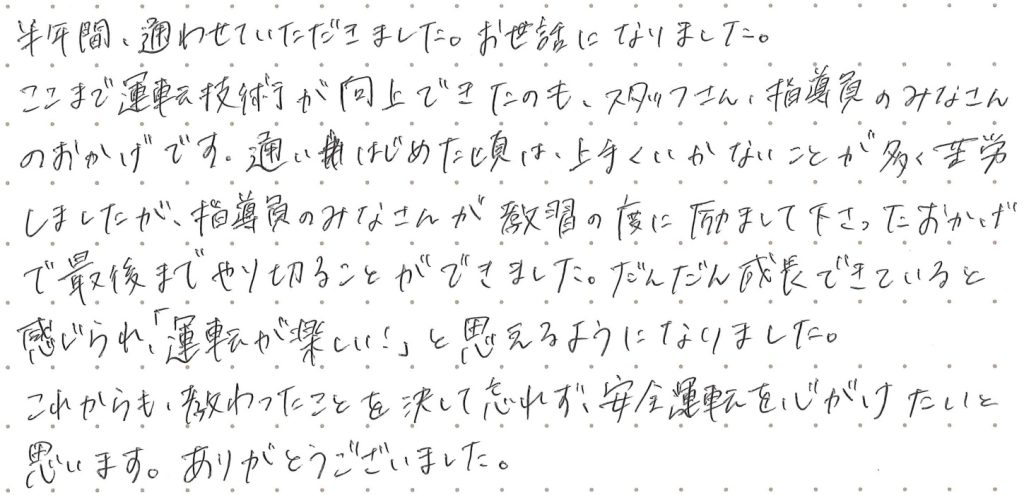 半年間、通わせていただきました。お世話になりました。
ここまで運転技術が向上できたのも、スタッフさん、指導員のみなさん
のおかげです。通いはじめた頃は、上手くいかないことが多く苦労
しましたが、指導員のみなさんが教習の度に励まして下さったおかげ
で最後までやり切ることができました。だんだん成長できていると
感じられ、「運転が楽しい!」と思えるようになりました。
これからも、教わったことを決して忘れず、安全運転を心がけたいと
思います。ありがとうございました。